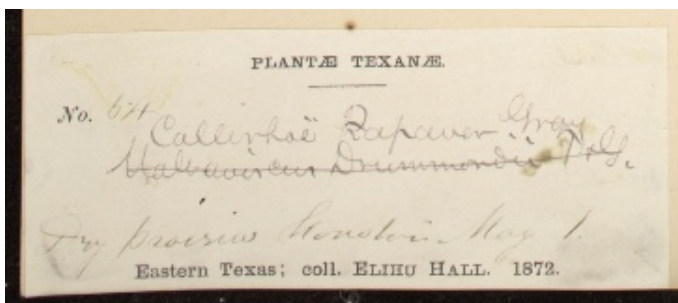 PLANTÆ TEXANÆ.
No. 64
Callirhoë Papaver Gray
Malvaviscus Drummondii T&G.
Dry prairies Houston May 1.
Eastern Texas; coll. ELIHU HALL. 1872.